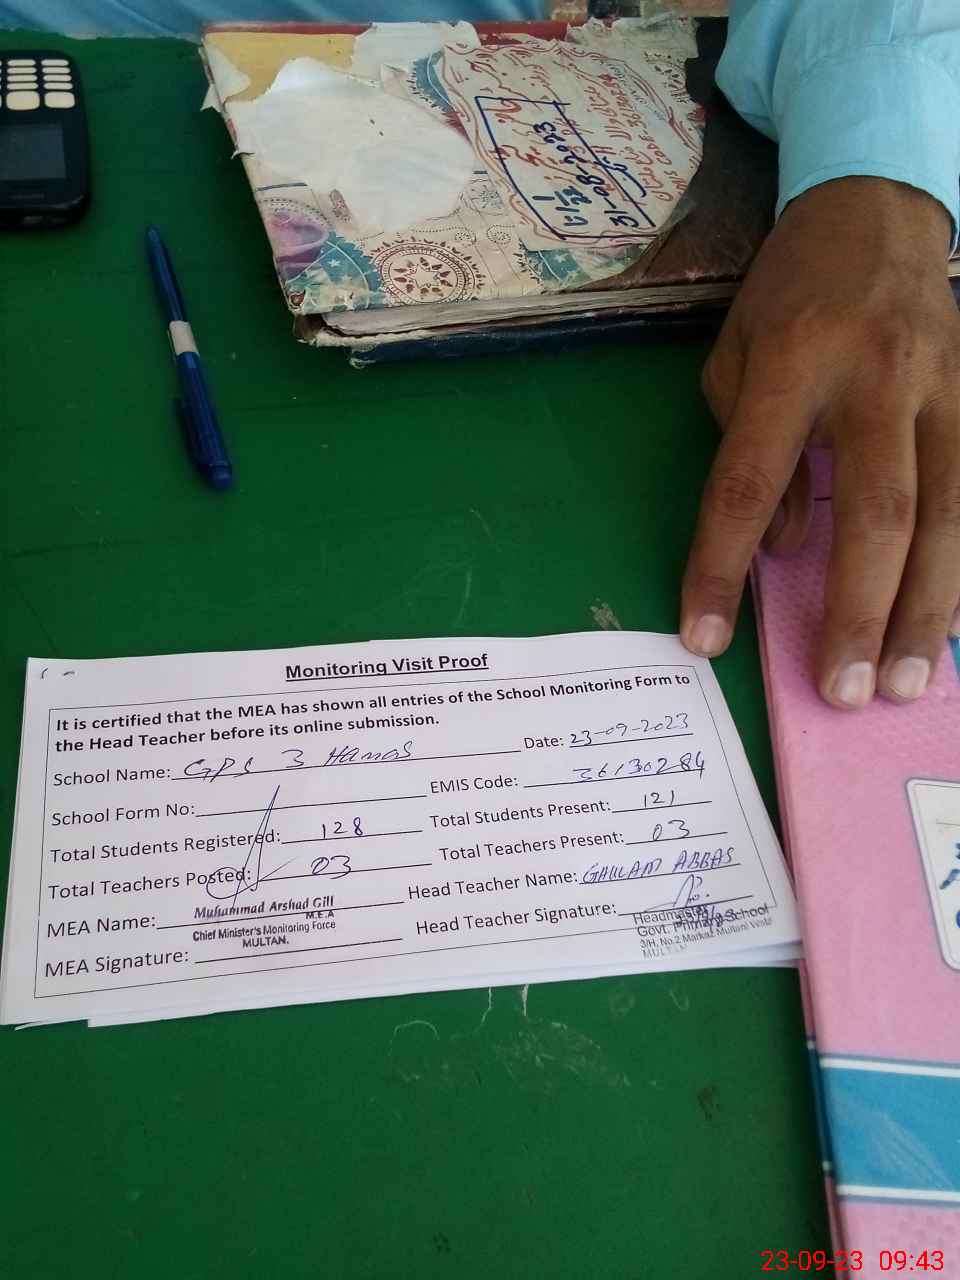 31-08-2023
Monitoring Visit Proof
It is certified that the MEA has shown all entries of the School Monitoring Form to
the Head Teacher before its online submission.
School Name: GPS 3 Hamas Date: 23-09-2023
School Form No: EMIS Code: 36130284
Total Students Registered: 128 Total Students Present: 121
Total Teachers Posted: 03 Total Teachers Present: 03
MEA Name: Muhammad Arshad Gill Head Teacher Name: GHULAM ABBAS
M.E.A
Chief Minister's Monitoring Force
MULTAN.
MEA Signature: Head Teacher Signature:
Headmaster
Govt. Primary School
3/H, No.2 Markaz Multani Wala
MULTAN
23-09-23 09:43